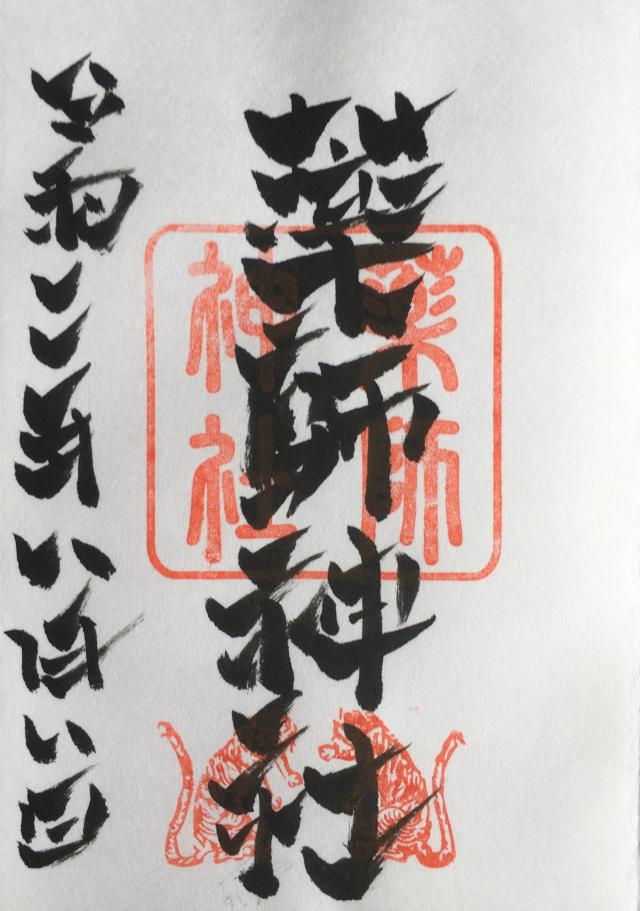 薬師神社
令和二年八月八日
薬師
神社